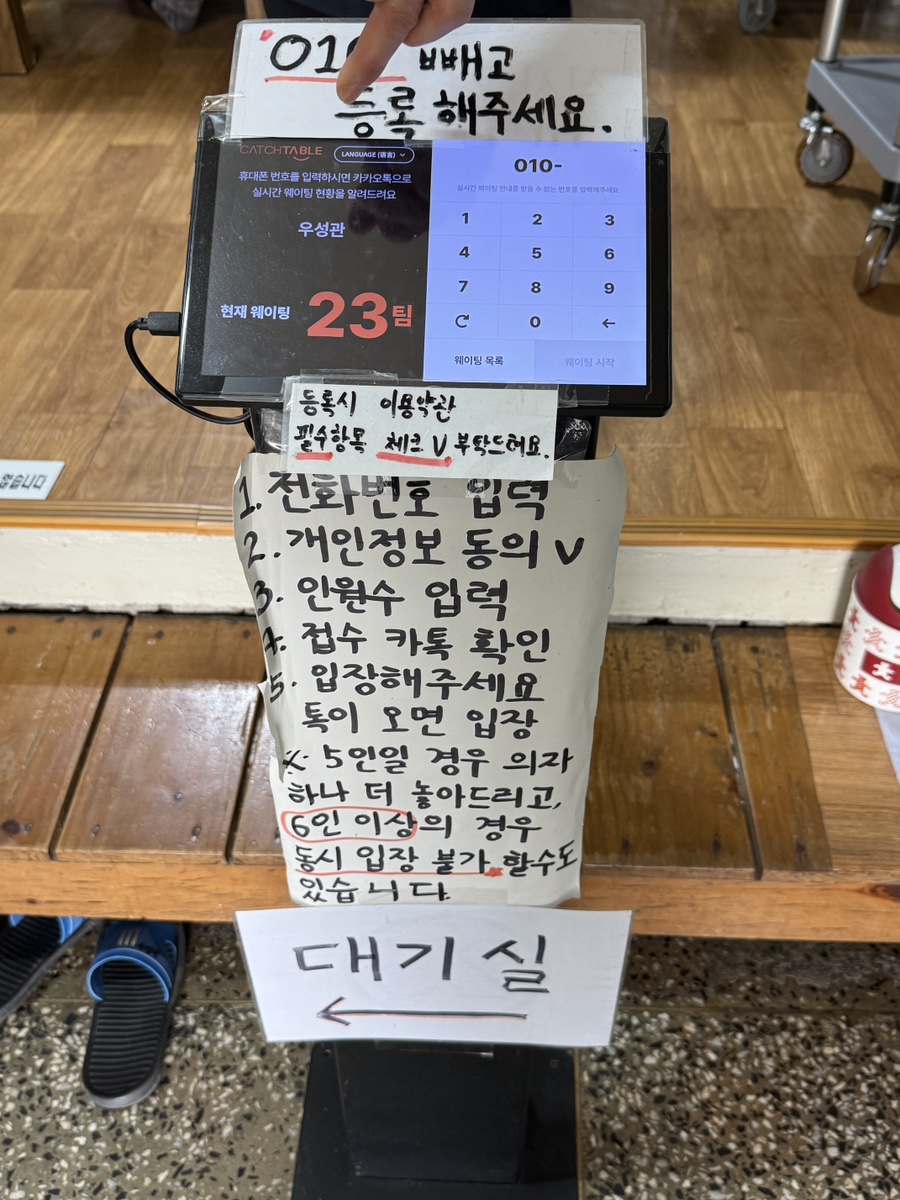 010 빼고
등록 해주세요.
CATCHTABLE
LANGUAGE (语言)
휴대폰 번호를 입력하시면 카카오톡으로
실시간 웨이팅 현황을 알려드려요
우성관
현재 웨이팅 23팀
010-
실시간 웨이팅 안내를 받을 수 있는 번호를 입력해주세요
1 2 3
4 5 6
7 8 9
0
웨이팅 목록 웨이팅 시작
등록시 이용약관
필수항목 체크 V 부탁드려요.
1. 전화번호 입력
2. 개인정보 동의 V
3. 인원수 입력
4. 접수 카톡 확인
5. 입장해주세요
톡이 오면 입장
※ 5인일 경우 의자
하나 더 놓아드리고,
6인 이상의 경우
동시 입장 불가 할수도
있습니다.
대기실
없습니다